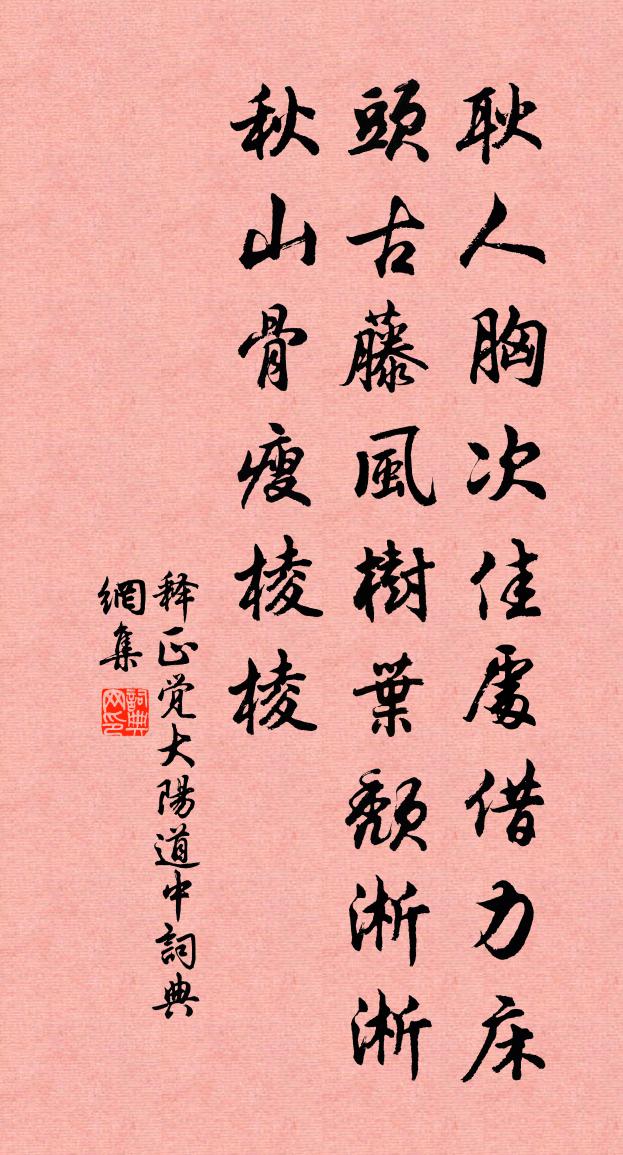 耿人胸次佳處借力床
頭古藤風樹葉頹淅淅
秋山骨瘦棱棱
释正觉大陽道中詞典
網集
詞典
网印